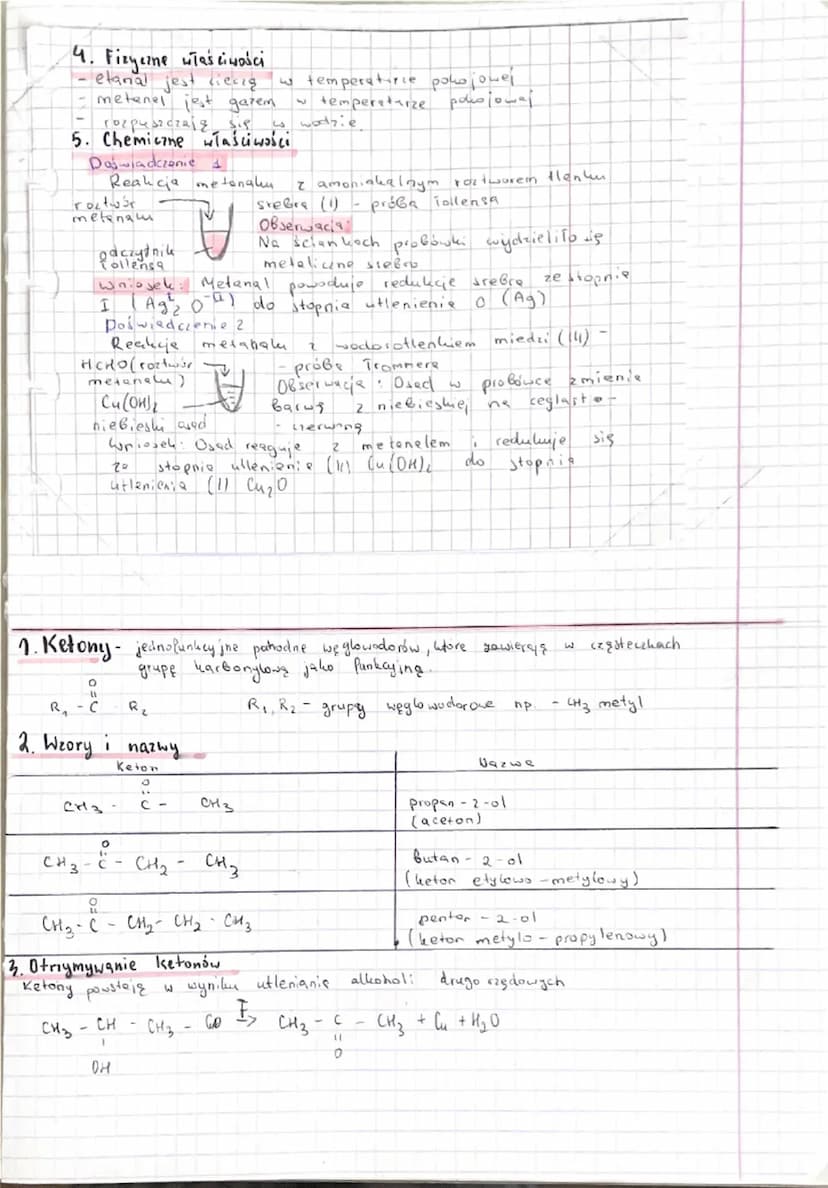 4. Fizyczne właściwości
- etanal jest cieczą w temperaturze pokojowej
- metanal jest gazem w temperaturze pokojowej
- rozpuszczają się w wodzie
5. Chemiczne właściwości
Doświadczenie 1
Reakcja metanalu z amoniakalnym roztworem tlenku
srebra (I) - próba Tollensa
roztwór
metanalu
odczytnik
Tollensa
Obserwacja:
Na ściankach probówki wydzieliło się
metaliczne srebro
Wniosek: Metanal powoduje redukcje srebra ze stopnia
I (Ag₂ᴵ O⁻ᴵᴵ) do stopnia utlenienia 0 (Ag)
Doświadczenie 2
Reakcja metanalu z wodorotlenkiem miedzi (III) -
- próba Trommera
HCHO (roztwór
metanalu)
Cu(OH)₂
niebieski osad
Obserwacja: Osad w probówce zmienia
barwę z niebieskiej na ceglasto-
- czerwoną
Wniosek: Osad reaguje z metanalem i redukuje się
ze stopnia utlenienia (II) Cu(OH)₂ do stopnia
utlenienia (I) Cu₂O
1. Ketony - jednofunkcyjne pochodne węglowodorów, które zawierają w cząsteczkach
grupę karbonylową jako funkcyjną.
O
||
R₁ - C R₂
R₁, R₂ - grupy węglowodorowe np. - CH₃ metyl
2. Wzory i nazwy
Keton Nazwa
O
||
CH₃ - C - CH₃
propan - 2 - ol
(aceton)
O
||
CH₃ - C - CH₂ - CH₃
butan - 2 - ol
(keton etylowo - metylowy)
O
||
CH₃ - C - CH₂ - CH₂ - CH₃
pentan - 2 - ol
(keton metylo - propylenowy)
3. Otrzymywanie ketonów
Ketony powstają w wyniku utleniania alkoholi drugorzędowych
CH₃ - CH - CH₃ - CuO T→ CH₃ - C - CH₃ + Cu + H₂O
|
OH
||
O